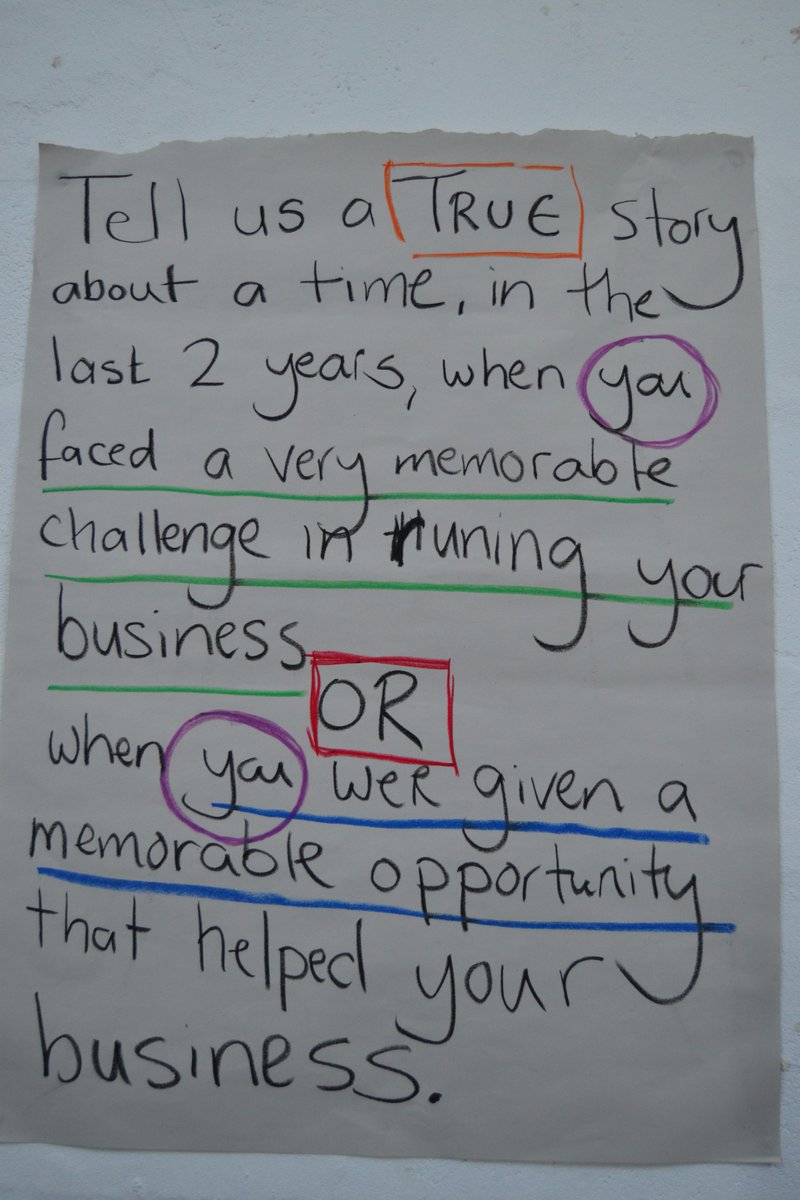 Tell us a TRUE story
about a time, in the
last 2 years, when you
faced a very memorable
challenge in runing your
business
OR
when you were given a
memorable opportunity
that helped your
business.